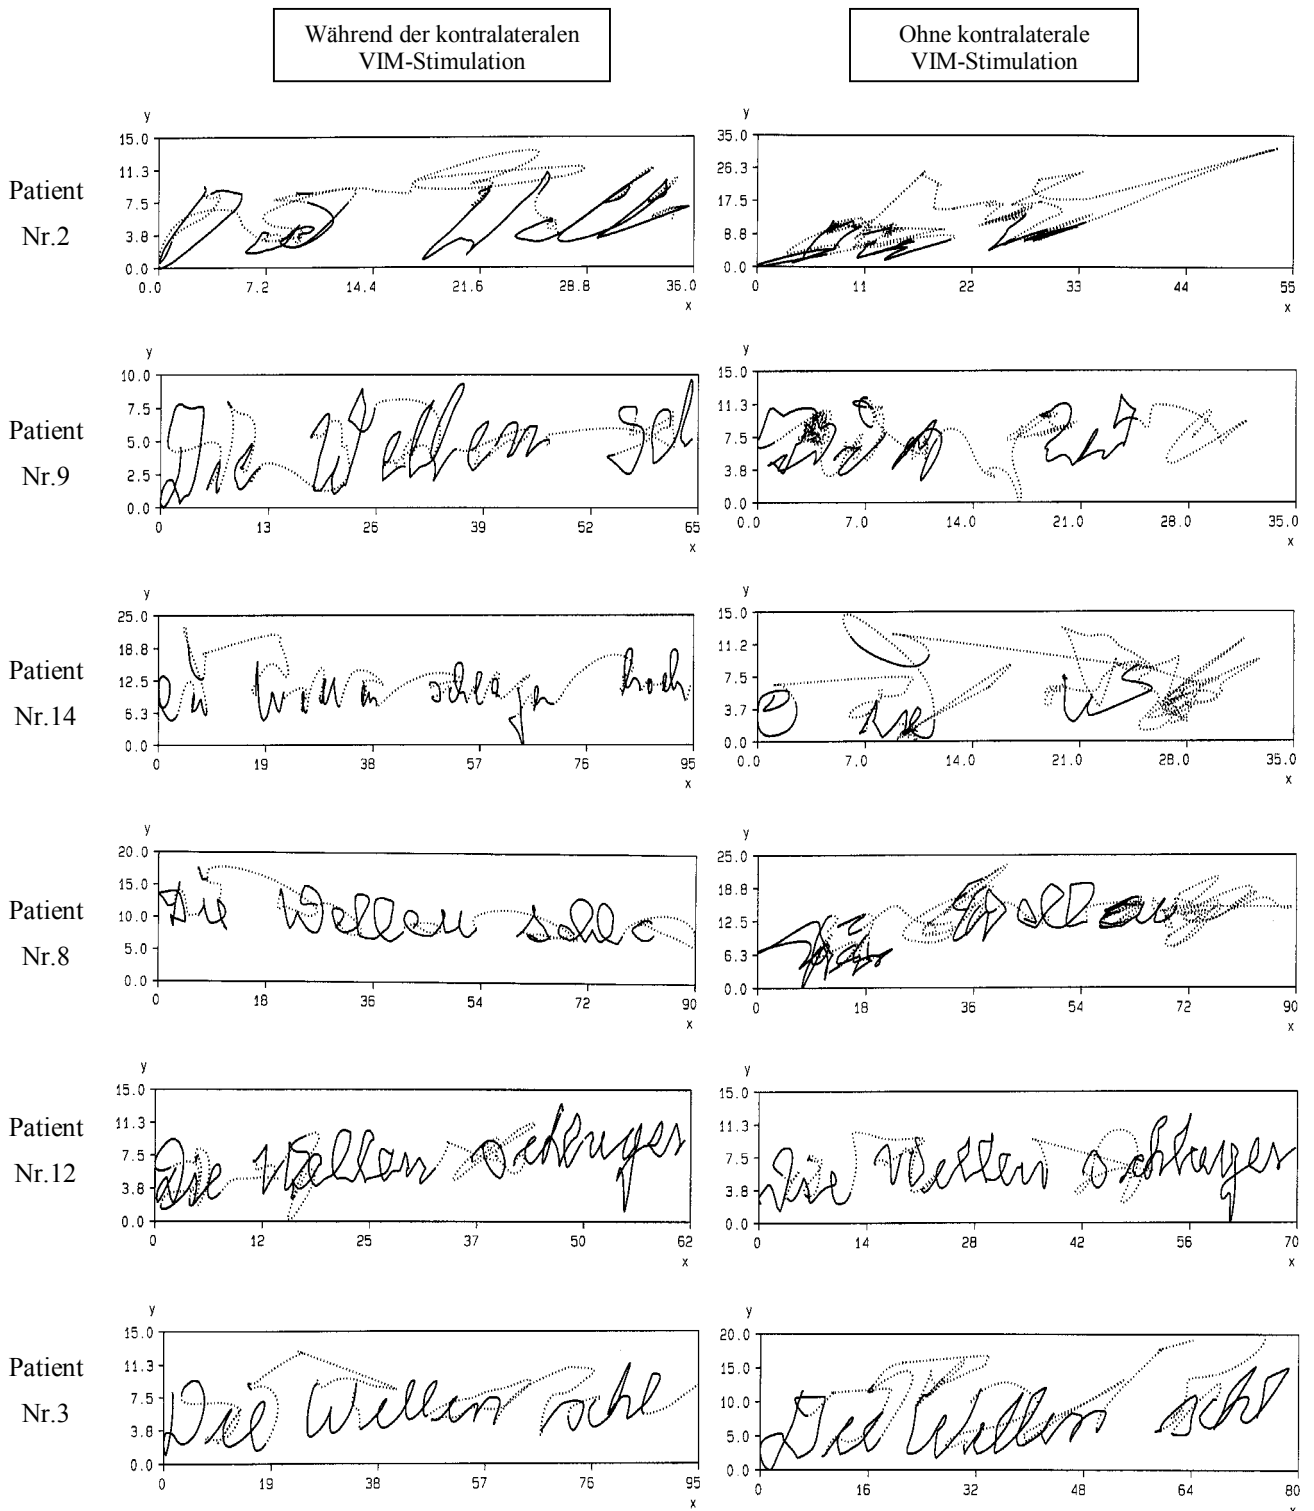 Während der kontralateralen
VIM-Stimulation
Ohne kontralaterale
VIM-Stimulation
Patient
Nr.2
y
15.0
11.3
7.5
3.8
0.0
0.0
7.2
14.4
21.6
28.8
36.0
x
y
35.0
26.3
17.5
8.8
0.0
0
11
22
33
44
55
x
Patient
Nr.9
y
10.0
7.5
5.0
2.5
0.0
0
13
26
39
52
65
x
Die Wellen sch
y
15.0
11.3
7.5
3.8
0.0
0.0
7.0
14.0
21.0
28.0
35.0
x
Patient
Nr.14
y
25.0
18.8
12.5
6.3
0.0
0
19
38
57
76
95
x
hoch
y
15.0
11.2
7.5
3.7
0.0
0.0
7.0
14.0
21.0
28.0
35.0
x
Patient
Nr.8
y
20.0
15.0
10.0
5.0
0.0
0
18
36
54
72
90
x
Die Wellen schla
y
25.0
18.8
12.5
6.3
0.0
0
18
36
54
72
90
x
Patient
Nr.12
y
15.0
11.3
7.5
3.8
0.0
0
12
25
37
50
62
x
Die Wellen
y
15.0
11.3
7.5
3.8
0.0
0
14
28
42
56
70
x
Die Wellen
Patient
Nr.3
y
15.0
11.3
7.5
3.8
0.0
0
19
38
57
76
95
x
Die Wellen schl
y
20.0
15.0
10.0
5.0
0.0
0
16
32
48
64
80
x
Die Wellen schl